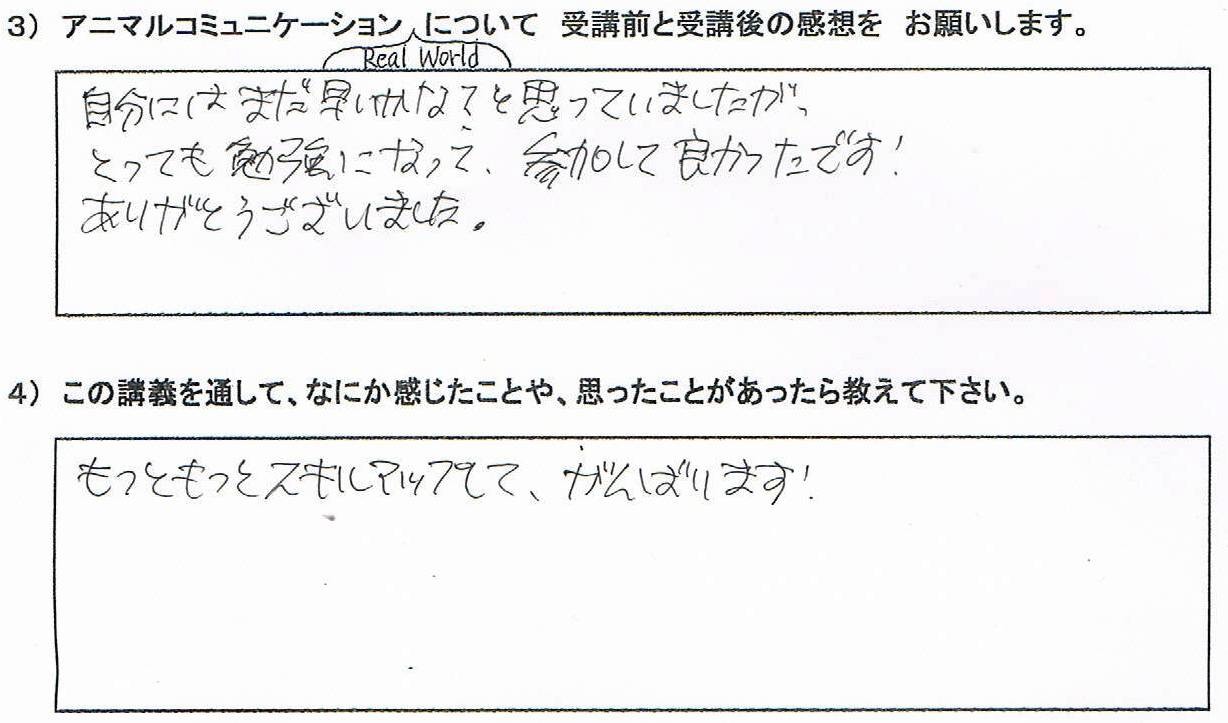 3) アニマルコミュニケーション について 受講前と受講後の感想を お願いします。
Real World
自分にはまだ早いかな?と思っていましたが、
とっても勉強になって、参加して良かったです!
ありがとうございました。
4) この講義を通して、なにか感じたことや、思ったことがあったら教えて下さい。
もっともっとスキルアップして、がんばります!